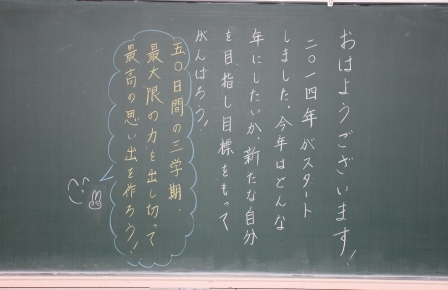 おはようございます!
二〇一四年がスタート
しました。今年はどんな
年にしたいか、新たな自分
を目指し目標をもって
がんばろう!
五〇日間の三学期、
最大限の力を出し切って
最高の思い出を作ろう!